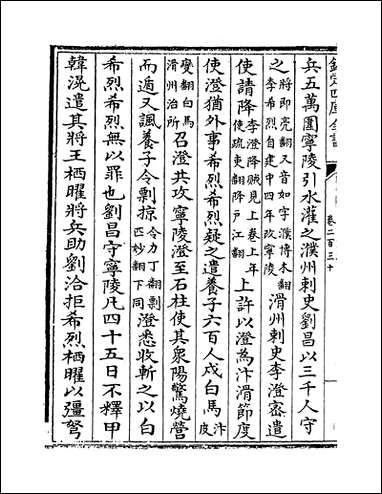 欽定四庫全書
卷二百三十
兵五萬圍寧陵引水灌之濮州刺史劉昌以三千人守
之將即亮翻又音如字濮博木翻李希烈自建中四年攻寧陵滑州刺史李澄密遣
使請降李澄降賊見上卷上年使疏吏翻降戶江翻上許以澄為汴滑節度
使澄猶外事希烈希烈疑之遣養子六百人戍白馬汴皮
變翻白馬滑州治所召澄共攻寧陵澄至石柱使其衆陽驚燒營
而遁又諷養子令剽掠令力丁翻剽匹妙翻下同澄悉收斬之以白
希烈希烈無以罪也劉昌守寧陵凡四十五日不釋甲
韓滉遣其將王栖曜將兵助劉洽拒希烈栖曜以彊弩